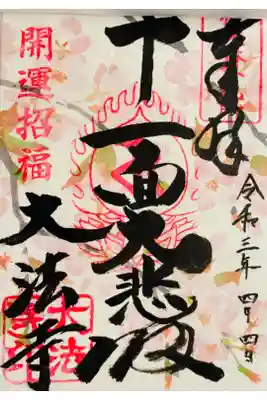 奉拝
令和三年 四月 四日
十一面大悲殿
開運招福
大法寺